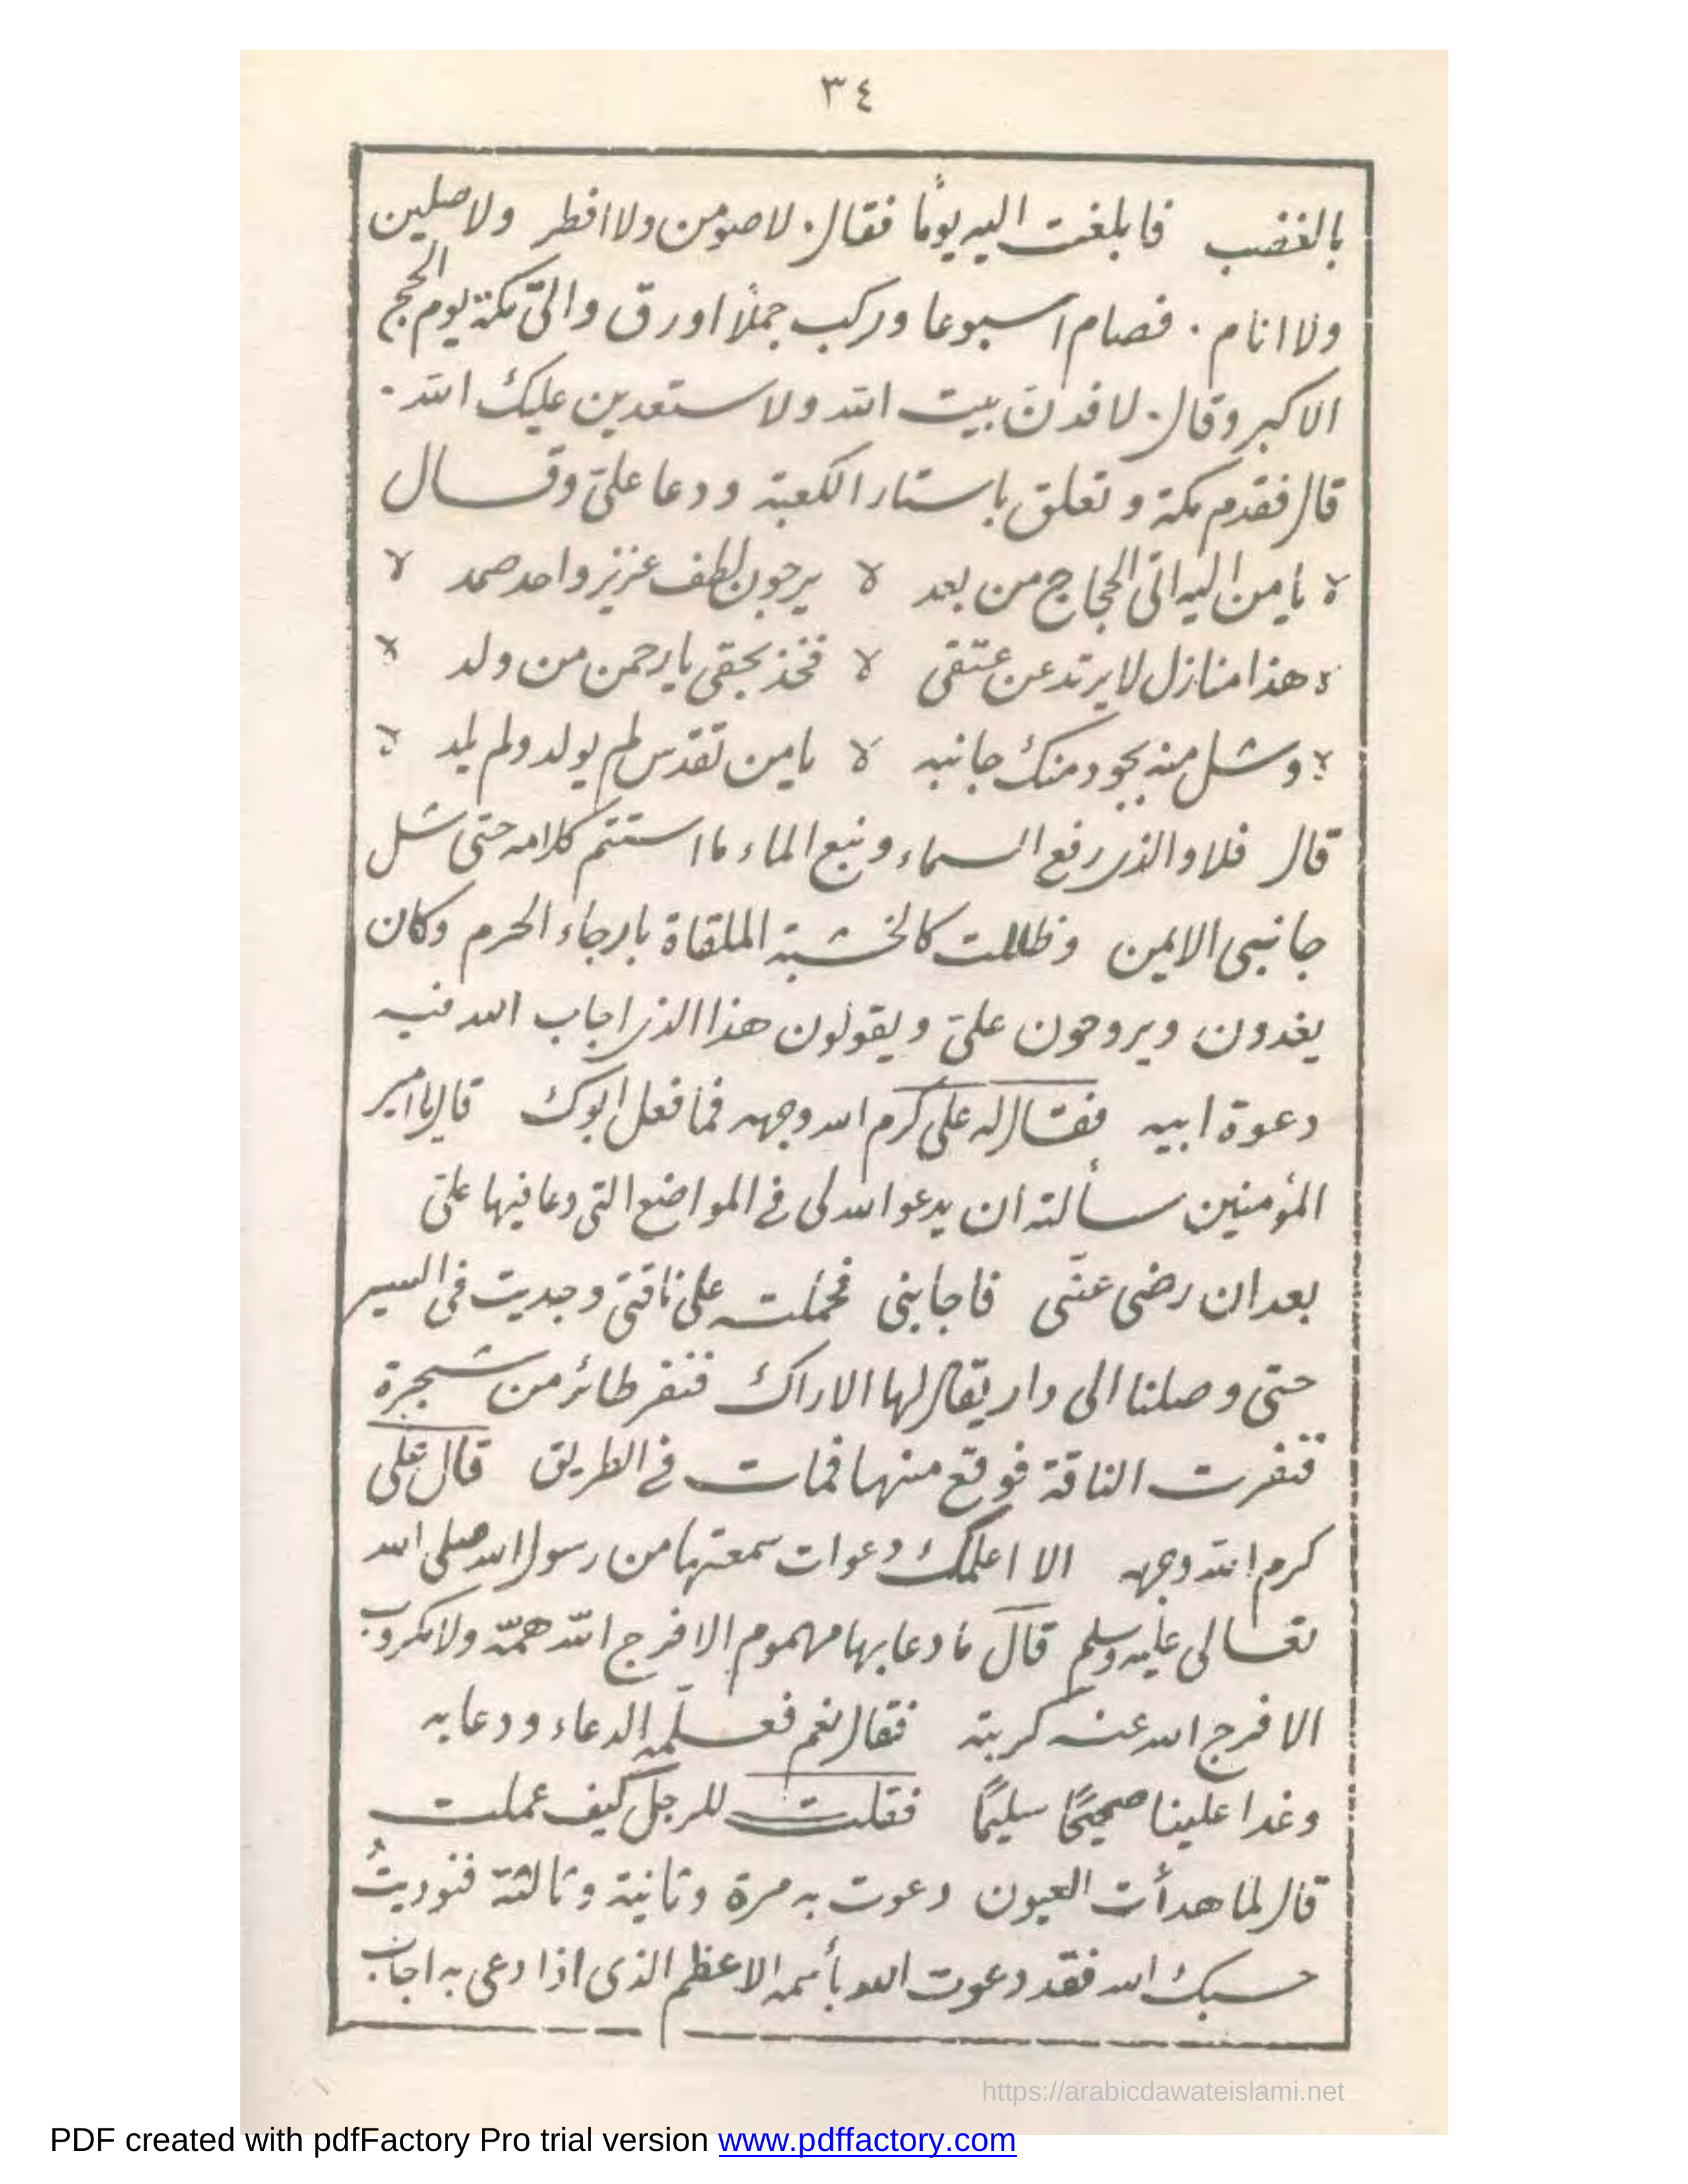 ٣٤
بالغضب فابلغت اليه يومًا فقال . لاصومن ولا افطر ولاصلين
ولا انام . فصام اسبوعا وركب جملًا اورق والىّ مكة يوم الحج
الاكبر وقال . لافدنّ بيت الله ولاستعدين عليك الله .
قال فقدم مكة وتعلق باستار الكعبة ودعا علىّ وقال
لا يا من اليه اتى الحجاج من بعد لا يرجون لطف عزيز واحد صمد لا
لا هذا منازل لا يرتد عن عتقى لا فخذ بحقى يا رحمن من ولد لا
لا وشل منه بجود منك جانبه لا يا من تقدس لم يولد ولم يلد لا
قال فلا والذى رفع السماء ونبع الماء ما استتم كلامه حتى شل
جانبى الايمن وظللت كالخشبة الملقاة بارجاء الحرم وكان
يغدون ويروحون علىّ ويقولون هذا الذى اجاب الله فيه
دعوة ابيه فقال له على كرم الله وجهه فما فعل ابوك قال يا امير
المؤمنين سألته ان يدعو الله لى فى المواضع التى دعا فيها علىّ
بعد ان رضى عنّى فاجابنى فحملته على ناقتى وجديت فى السير
حتى وصلنا الى واد يقال لها الاراك فنفر طائر من شجرة
فنفرت الناقة فوقع منها فمات فى الطريق قال على
كرم الله وجهه الا اعلمك دعوات سمعتها من رسول الله صلى الله
تعالى عليه وسلم قال ما دعا بها مهموم الا فرج الله همّه ولا مكروب
الا فرج الله عنه كربته فقال نعم فعلّمه الدعاء ودعا به
وغدا علينا صحيحًا سليمًا فقلت للرجل كيف عملت
قال لما هدأت العيون دعوت به مرة وثانية وثالثة فنوديتُ
حسبك الله فقد دعوت الله بأسمه الاعظم الذى اذا دعى به اجاب
https://arabicdawateislami.net
PDF created with pdfFactory Pro trial version www.pdffactory.com